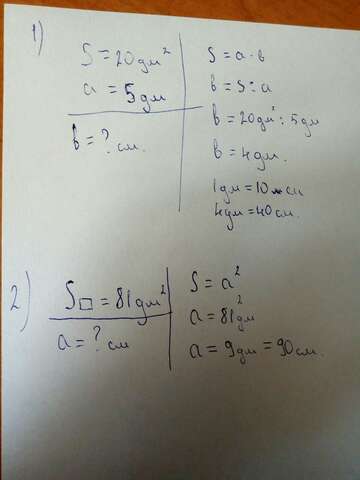 1)
S = 20 дм²
a = 5 дм
b = ? см.
S = a · b
b = S : a
b = 20 дм² : 5 дм
b = 4 дм.
1 дм = 10 см
4 дм = 40 см.
2)
S□ = 81 дм²
a = ? см
S = a²
a = 81 дм²
a = 9 дм = 90 см.